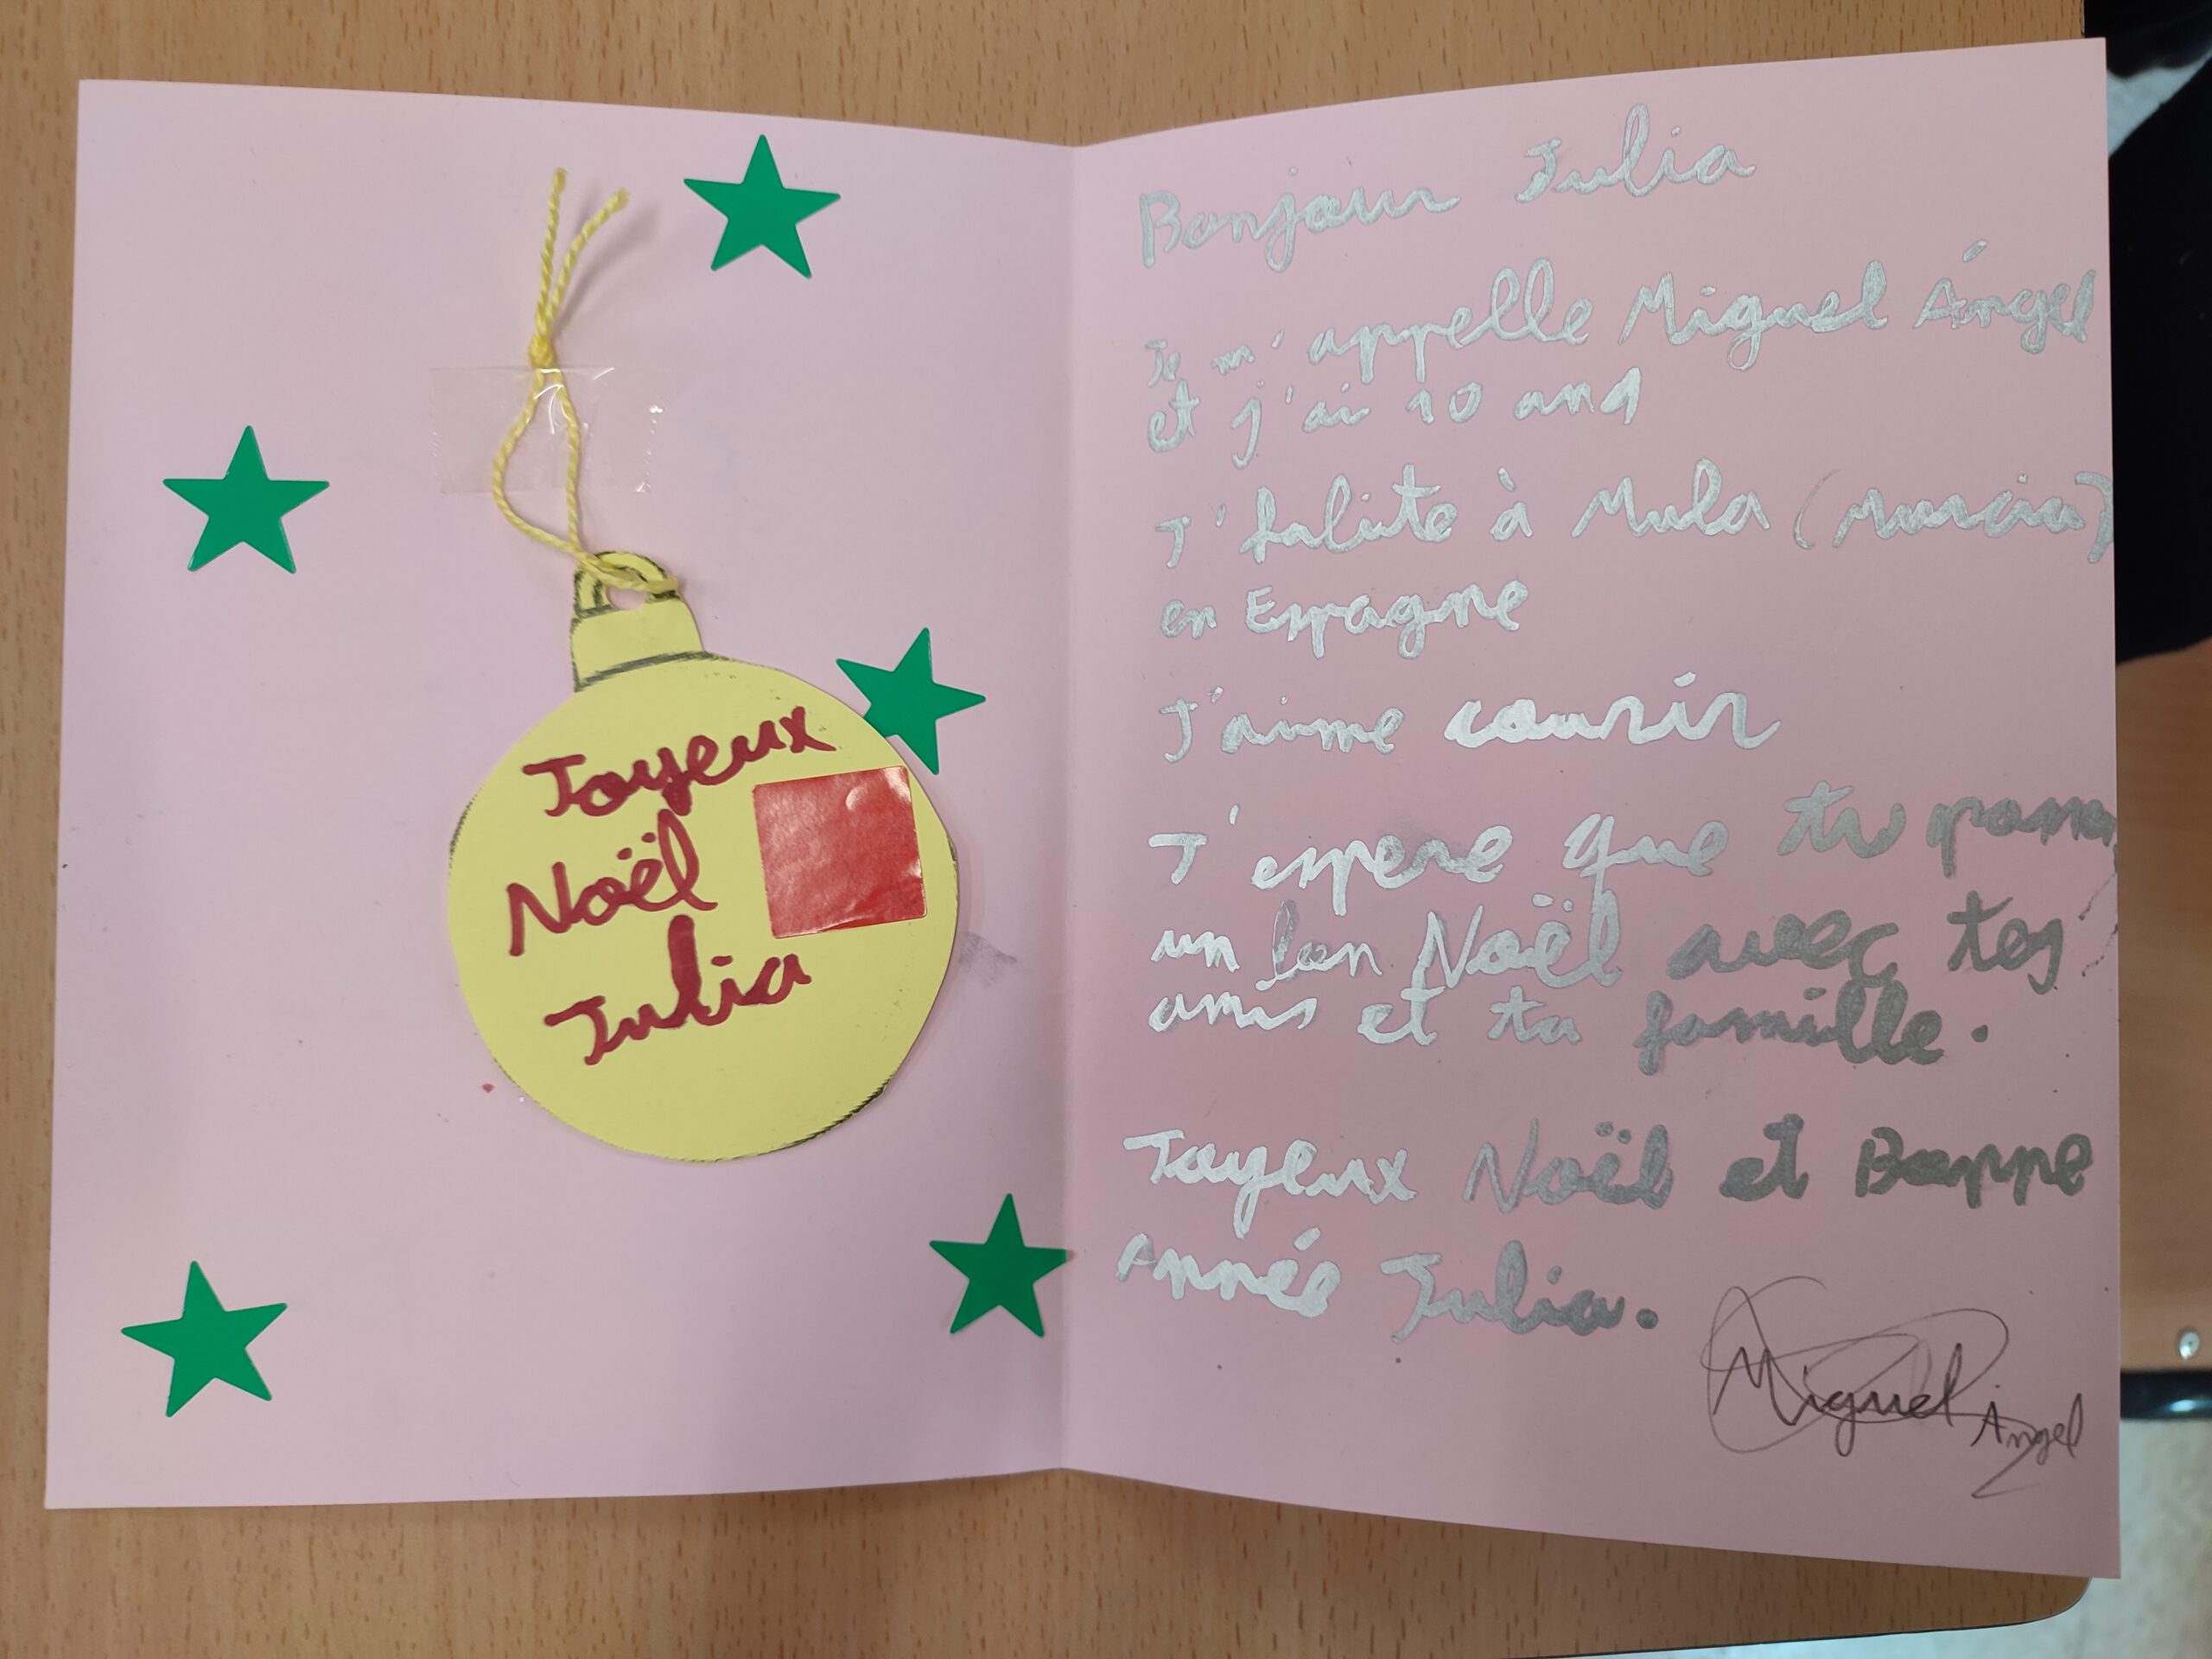 Joyeux
Noël
Julia
Bonjour Julia
Je m'appelle Miguel Ángel
et j'ai 10 ans
J'habite à Mula (Murcia)
en Espagne
J'aime courir
J'espere que tu passes
un bon Noël avec tes
amis et ta famille.
Joyeux Noël et Bonne
Année Julia.
Miguel Ángel